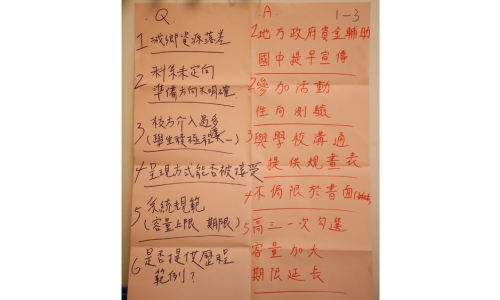 . Q.
1 城鄉資源落差
2 科系未定向
準備方向未明確
3 校方介入過多
(學生積極
4 呈現方式能否被接受
5 系統規範
(容量上限 期限)
6 是否提供歷程
範例?
. A.
1-3
1 地方政府資金輔助
國中提早宣傳
2 參加活動
性向測驗
3 與學校溝通
提供規畫表
4 不侷限於書面
5 高三一次勾選
容量加大
期限延長